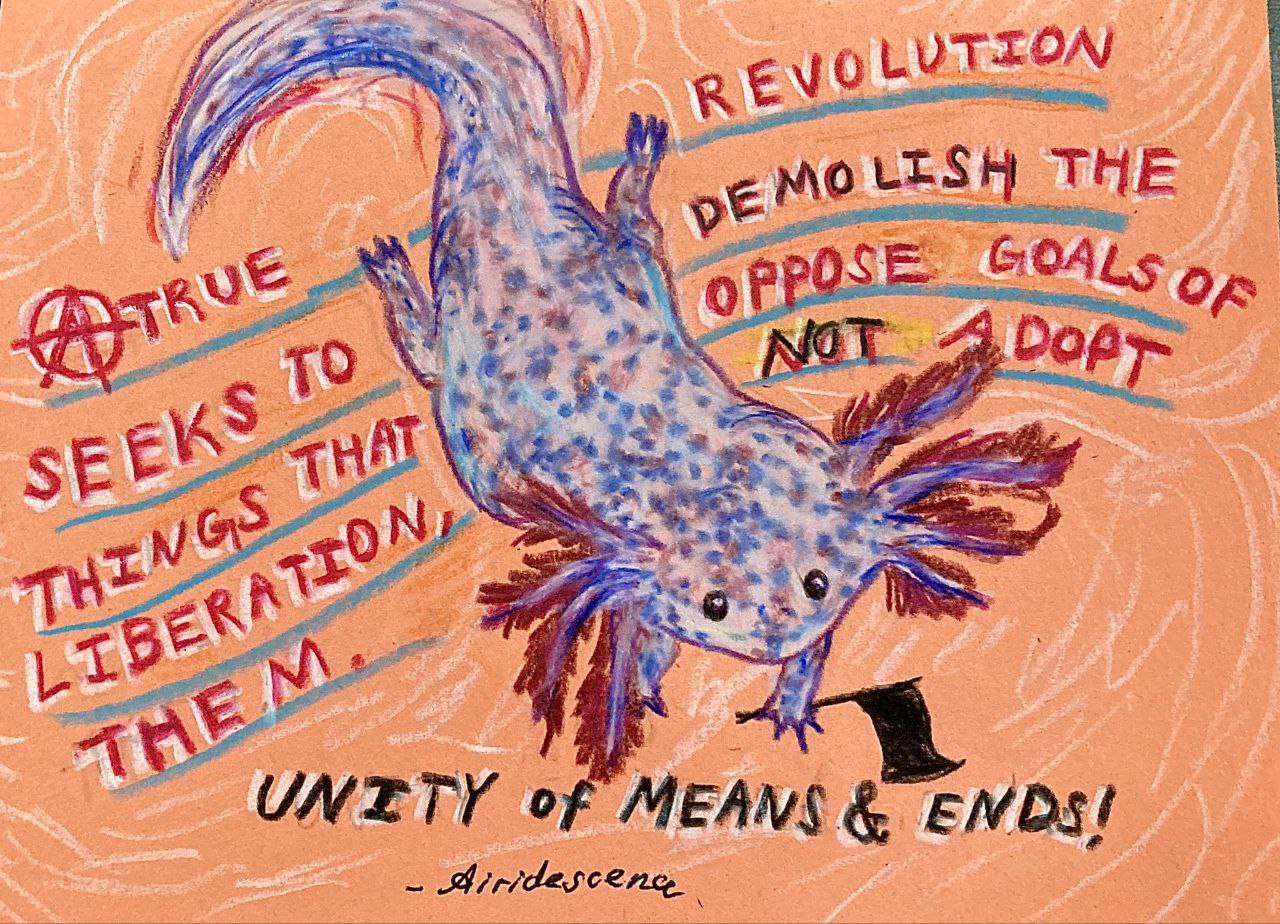 A TRUE REVOLUTION
SEEKS TO DEMOLISH THE
THINGS THAT OPPOSE GOALS OF
LIBERATION, NOT ADOPT
THEM.
UNITY of MEANS & ENDS!
- Airidescence